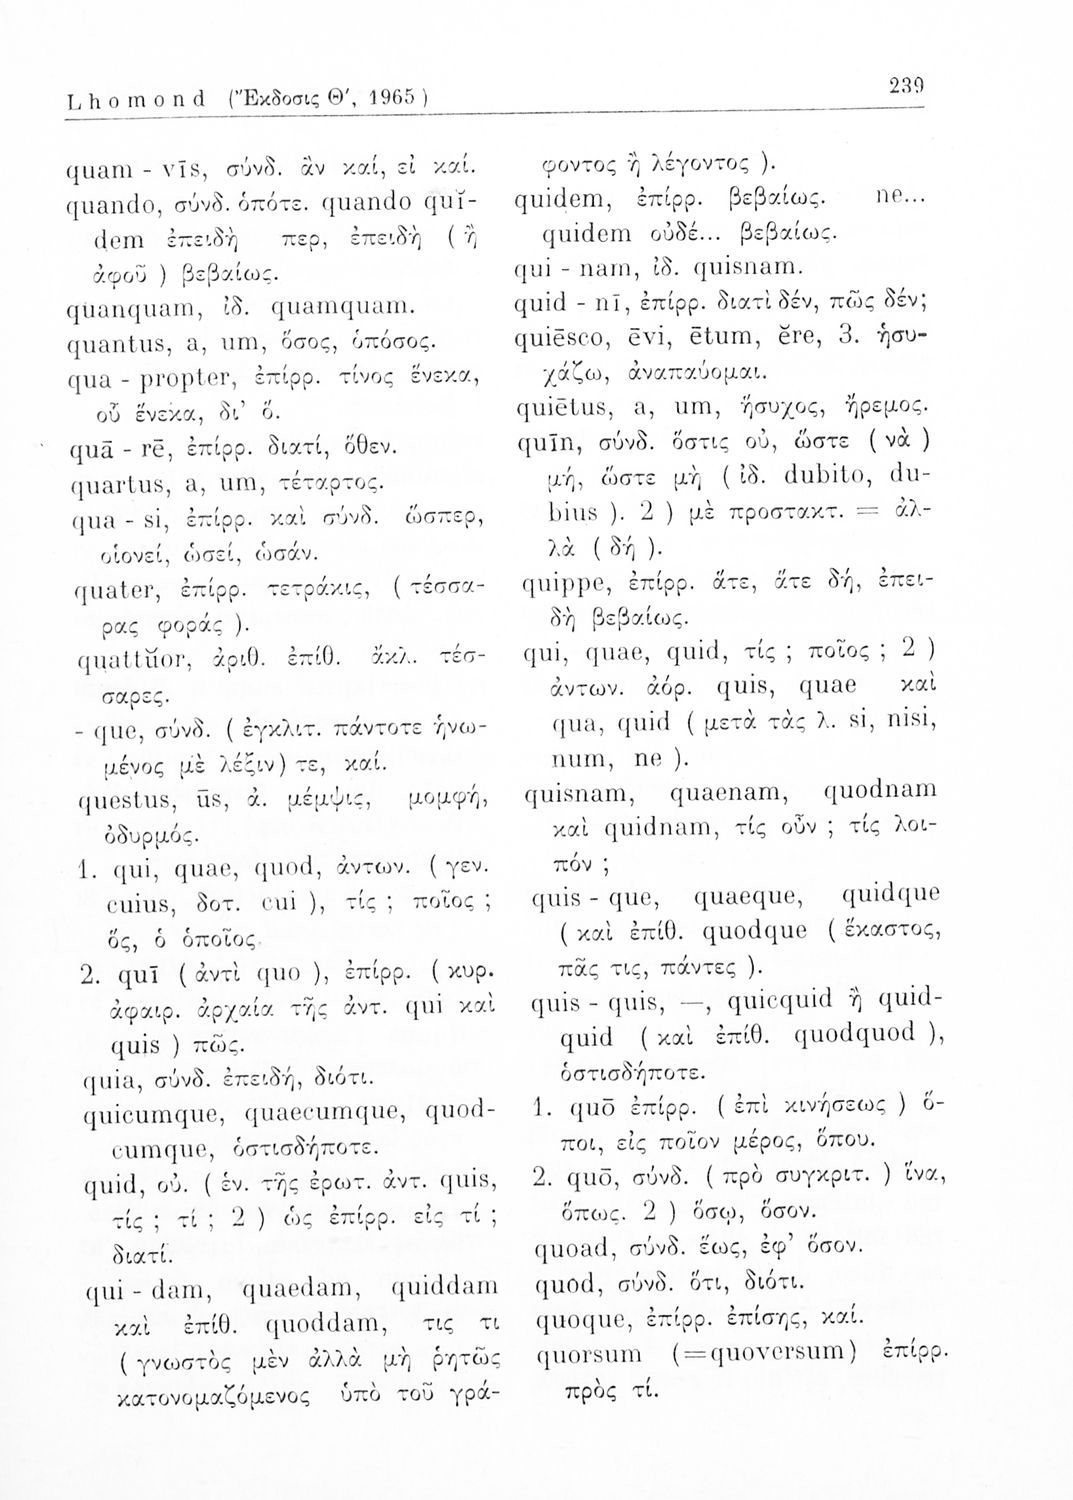 Lhomond (Ἔκδοσις Θ', 1965)
239
quam - vīs, σύνδ. ἂν καί, εἰ καί.
quando, σύνδ. ὁπότε. quando quĭ-
dem ἐπειδὴ περ, ἐπειδὴ ( ἢ
ἀφοῦ ) βεβαίως.
quanquam, ἰδ. quamquam.
quantus, a, um, ὅσος, ὁπόσος.
qua - propter, ἐπίρρ. τίνος ἕνεκα,
οὗ ἕνεκα, δι' ὅ.
quā - rē, ἐπίρρ. διατί, ὅθεν.
quartus, a, um, τέταρτος.
qua - si, ἐπίρρ. καὶ σύνδ. ὥσπερ,
οἱονεί, ὡσεί, ὡσάν.
quater, ἐπίρρ. τετράκις, ( τέσσα-
ρας φοράς ).
quattŭor, ἀριθ. ἐπίθ. ἄκλ. τέσ-
σαρες.
- que, σύνδ. ( ἐγκλιτ. πάντοτε ἡνω-
μένος μὲ λέξιν) τε, καί.
questus, ūs, ἀ. μέμψις, μομφή,
ὀδυρμός.
1. qui, quae, quod, ἀντων. ( γεν.
cuius, δοτ. cui ), τίς ; ποῖος ;
ὅς, ὁ ὁποῖος.
2. quī ( ἀντὶ quo ), ἐπίρρ. ( κυρ.
ἀφαιρ. ἀρχαία τῆς ἀντ. qui καὶ
quis ) πῶς.
quia, σύνδ. ἐπειδή, διότι.
quicumque, quaecumque, quod-
cumque, ὁστισδήποτε.
quid, οὐ. ( ἑν. τῆς ἐρωτ. ἀντ. quis,
τίς ; τί ; 2 ) ὡς ἐπίρρ. εἰς τί ;
διατί.
qui - dam, quaedam, quiddam
καὶ ἐπίθ. quoddam, τις τι
( γνωστὸς μὲν ἀλλὰ μὴ ῥητῶς
κατονομαζόμενος ὑπὸ τοῦ γρά-
φοντος ἢ λέγοντος ).
quidem, ἐπίρρ. βεβαίως. ne...
quidem οὐδέ... βεβαίως.
qui - nam, ἰδ. quisnam.
quid - nī, ἐπίρρ. διατὶ δέν, πῶς δέν;
quiēsco, ēvi, ētum, ĕre, 3. ἡσυ-
χάζω, ἀναπαύομαι.
quiētus, a, um, ἥσυχος, ἤρεμος.
quīn, σύνδ. ὅστις οὐ, ὥστε ( νὰ )
μή, ὥστε μὴ ( ἰδ. dubito, du-
bius ). 2 ) μὲ προστακτ. = ἀλ-
λὰ ( δή ).
quippe, ἐπίρρ. ἅτε, ἅτε δή, ἐπει-
δὴ βεβαίως.
qui, quae, quid, τίς ; ποῖος ; 2 )
ἀντων. ἀόρ. quis, quae καὶ
qua, quid ( μετὰ τὰς λ. si, nisi,
num, ne ).
quisnam, quaenam, quodnam
καὶ quidnam, τίς οὖν ; τίς λοι-
πόν ;
quis - que, quaeque, quidque
( καὶ ἐπίθ. quodque ( ἕκαστος,
πᾶς τις, πάντες ).
quis - quis, —, quicquid ἢ quid-
quid ( καὶ ἐπίθ. quodquod ),
ὁστισδήποτε.
1. quō ἐπίρρ. ( ἐπὶ κινήσεως ) ὅ-
ποι, εἰς ποῖον μέρος, ὅπου.
2. quō, σύνδ. ( πρὸ συγκριτ. ) ἵνα,
ὅπως. 2 ) ὅσῳ, ὅσον.
quoad, σύνδ. ἕως, ἐφ' ὅσον.
quod, σύνδ. ὅτι, διότι.
quoque, ἐπίρρ. ἐπίσης, καί.
quorsum (=quoversum) ἐπίρρ.
πρὸς τί.